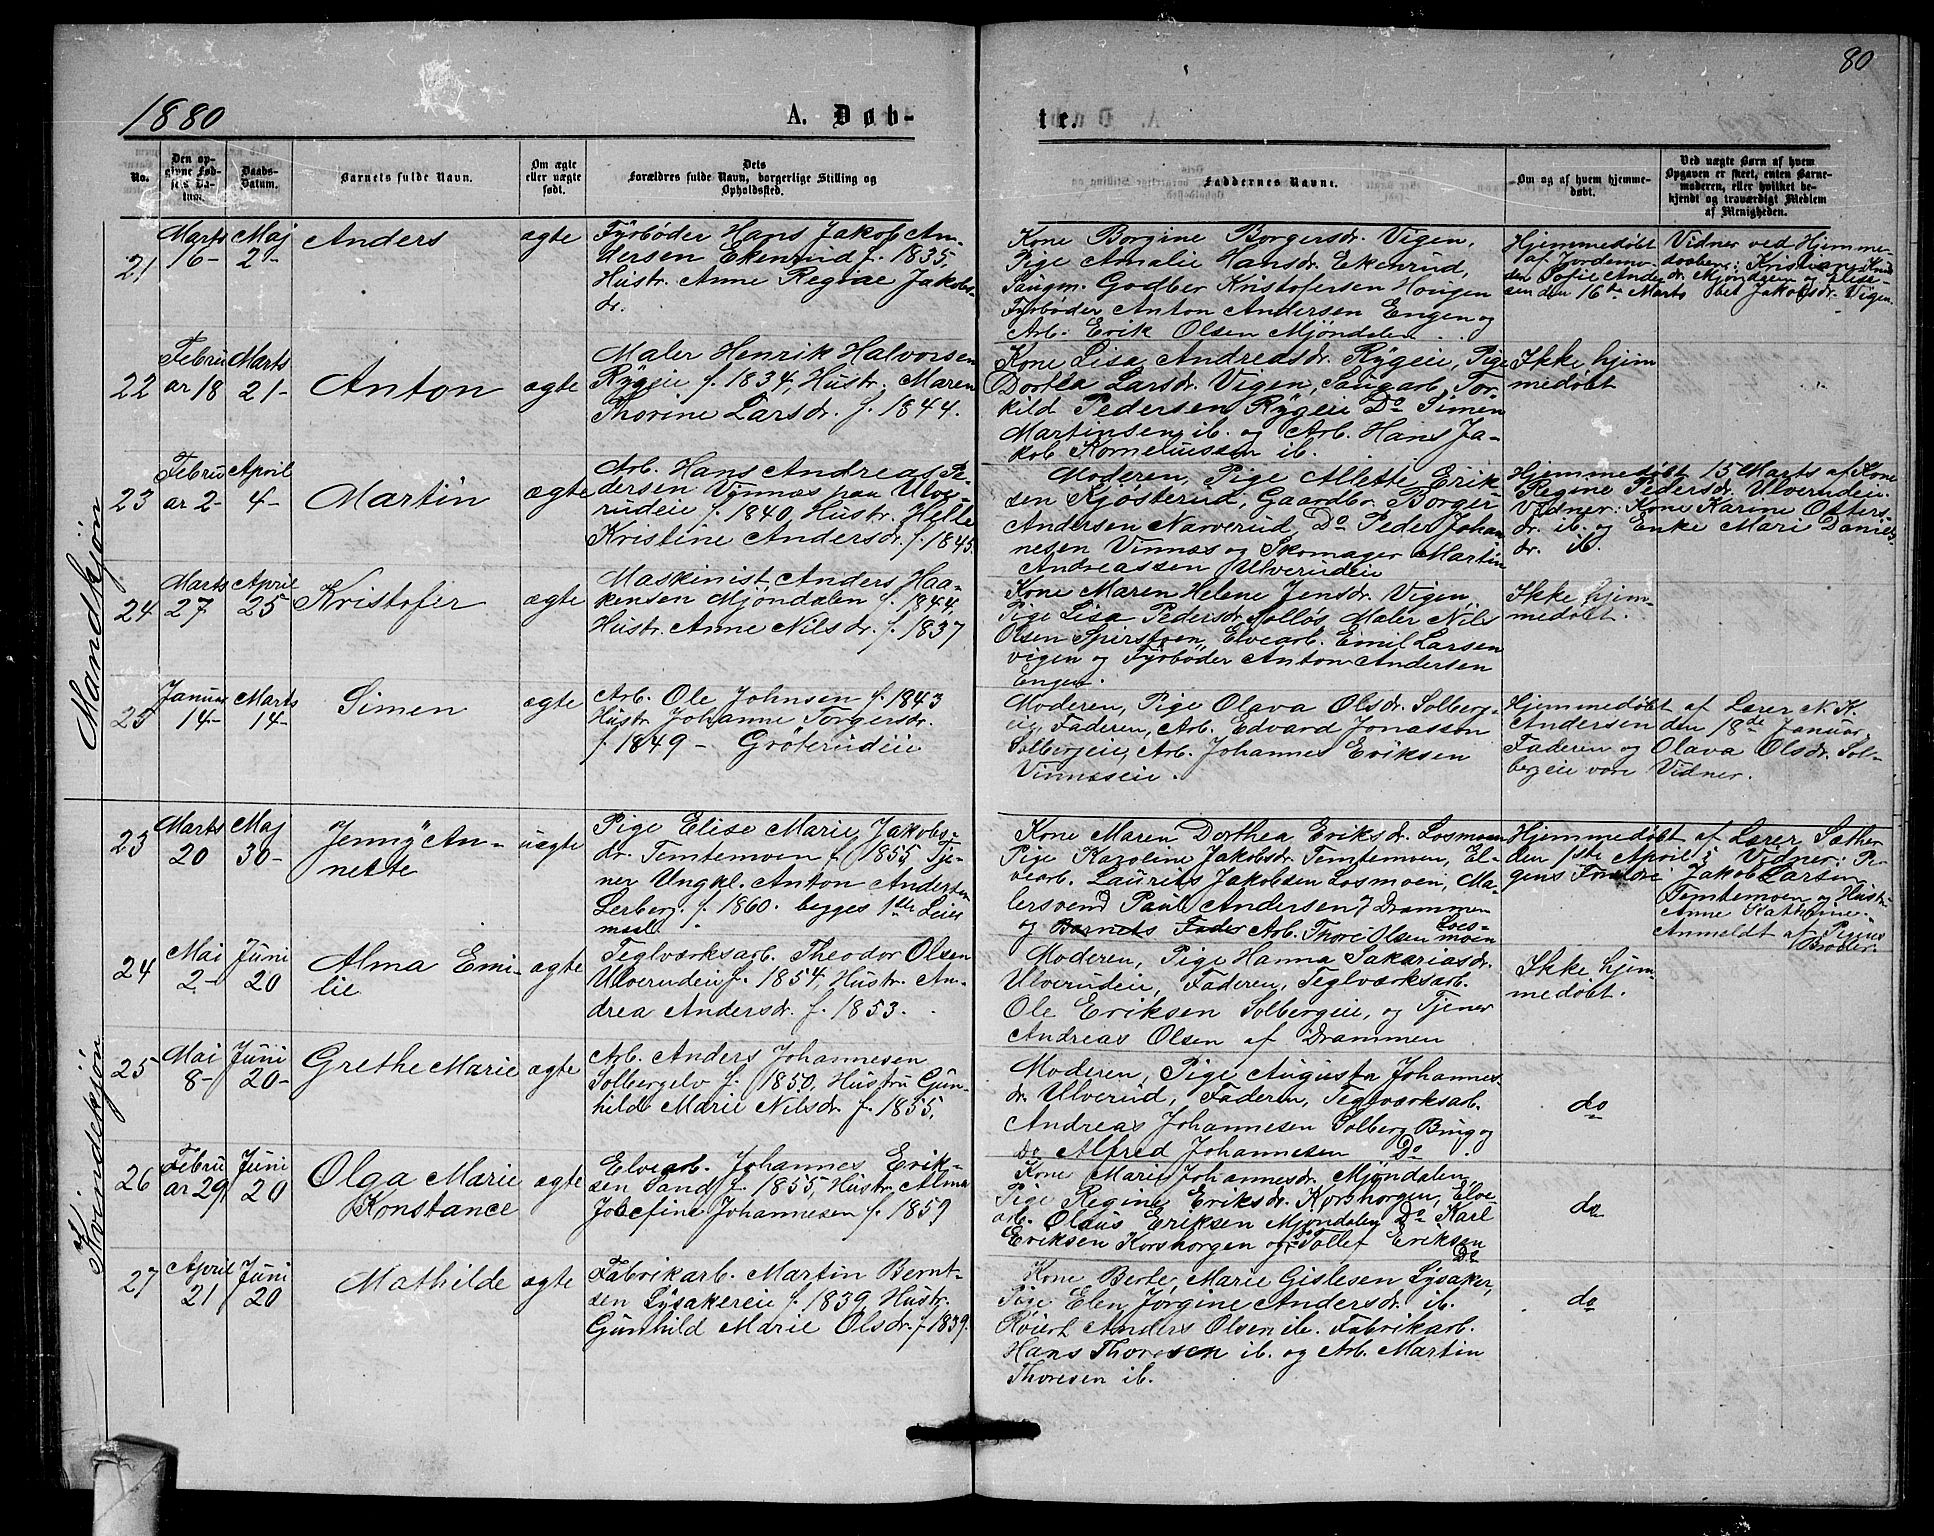 80
1880
A. Døb-
te.
No.
Den op-
givne Fød-
sels Da-
tum.
Daabs-
Datum.
Barnets fulde Navn.
Om ægte
eller uægte
født.
Dets
Forældres fulde Navn, borgerlige Stilling og
Opholdssted.
Faddernes Navne.
Om og af hvem hjemme-
døbt.
Ved uægte Børn af hvem
Opgaven er skeet, enten Barne-
moderen, eller hvilket be-
kjendt og troværdigt Medlem
af Menigheden.
Mandkjøn
21
Marts
16-
Maj
2-
Anders
ægte
Fyrbøder Hans Jakob An-
dersen Ekenrud f. 1835
Hustr. Anne Regine Jakobs-
dr.
Kone Borgine Borgersdr. Vigen,
Pige Amalie Hansdr. Ekenrud,
Saugm. Godber Kristofersen Hougen
Fyrbøder Anton Andersen Engen og
Arb. Erik Olsen Mjøndalen
Hjemmedøbt
af Jordemo-
den Sofie Ander-
sen den 16de Marts
Vidner ved Hjemme-
daaben: Kristiane Knuds-
dr. Mjøndalen og Elise-
bet Jakobsdr. Vigen
22
Febru
ar 18
Marts
21-
Anton
ægte
Maler Henrik Halvorsen
Rygeie f. 1834, Hustr. Maren
Thorine Larsdr. f. 1844.
Kone Lisa Andreasdr. Rygeie, Pige
Dorthea Larsdr. Vigen, Saugarb. Tor-
kild Pedersen Rygeie Do Simen
Martinsen ib. og Arb. Hans Ja-
kob Korneliussen ib.
Ikke hjem
medøbt
23
Febru
ar 2-
April
4-
Martin
ægte
Arb. Hans Andreas Pe-
dersen Vinnæs paa Ulve-
rudeie f. 1840, Hustr. Helle
Kristine Andersdr. f. 1845.
Moderen, Pige Allette Erik-
sen Kjøsterud, Gaardbr. Borger
Andersen Narverud, Do Peder Johan
nesen Vinnæs og Skomager Martin
Andreassen Ulverudeie
Hjemmedøbt 15 Marts af Kone
Regine Pedersdr. Ulverudeie.
Vidner: Kone Karine Otters-
dr. ib. og Enke Mari Daniels
dr. ib.
24
Marts
27
April
25
Kristofer
ægte
Maskinist Anders Haa-
kensen Mjøndalen f. 1844,
Hustr. Anne Nilsdr. f. 1837
Kone Maren Helene Jensdr. Vigen
Pige Lisa Pedersdr. Solløs, Maler Nils
Olsen Spirstoen, Elvearb. Emil Larsen
Vigen og Fyrbøder Anton Andersen
Engen.
Ikke hjem-
medøbt.
25
Januar
14-
Marts
14-
Simen
ægte
Arb. Ole Johnsen f. 1843
Hustr. Johanne Torgersdr.
f. 1849 - Grøterudeie
Moderen, Pige Olava Olsdr. Solberg-
eie, Faderen, Arb. Edvard Jonassen
Solbergeie, Arb. Johannes Eriksen
Vinnæseie.
Hjemmedøbt af Lærer N. K.
Andersen den 18de Januar.
Faderen og Olava Olsdr. Sol-
bergeie vare Vidner.
Kvindekjøn
23
Marts
20
Maj
30-
Jenny An-
nette
uægte
Pige Elise Marie Jakobs-
dr. Temtemoen f. 1855, Tje-
ner Ungkl. Anton Andersen
Lerberg. f. 1860. begges 1ste Leier
maal.
Kone Maren Dorthea Eriksdr. Losmoen
Pige Karoline Jakobsdr. Temtemoen, El-
vearb. Laurits Jakobsen Losmoen, Ma-
lersvend Paul Andersen, Drammen
og Barnets Fader Arb. Thore Olsen Los-
moen
Hjemmedøbt af Lærer Sæther
den 1ste April; Vidner: Pi-
gens Forældre Jakob Larsen
Temtemoen og Hustr.
Anne Kathrine.
Anmeldt af Pigens
Broder.
24
Mai
2-
Juni
20
Alma Emi-
lie
ægte
Teglværksarb. Theodor Olsen
Ulverudeie f. 1854, Hustr. An-
drea Andersdr. f. 1853.
Moderen, Pige Hanna Sakariasdr.
Ulverudeie, Faderen, Teglværksarb.
Ole Eriksen Solbergeie, og Tjener
Andreas Olsen af Drammen
Ikke hjem-
medøbt.
25
Mai
8-
Juni
20-
Grethe Marie
ægte
Arb. Anders Johannesen
Solbergelv f. 1850, Hustru Gun-
hild Marie Nilsdr. f. 1855.
Moderen, Pige Augusta Johannes-
dr. Ulverud, Faderen, Teglværksarb.
Andreas Johannesen Solberg Brug og
Do Alfred Johannesen Do.
do
26
Febru
ar 29
Juni
20
Olga Marie
Konstance
ægte
Elvearb. Johannes Erik-
sen Sand f. 1855, Hustr. Alma
Josefine Johannesen f. 1859
Kone Marie Johannesdr. Mjøndalen,
Pige Regine Eriksdr. Korshorgen, Elve-
arb. Olaus Eriksen Mjøndalen Do Karl
Eriksen Korshorgen og Do Tollef Eriksen
Do
do
27
April
21
Juni
20
Mathilde
ægte
Fabrikarb. Martin Bernt-
sen Lysakereie f. 1839 Hustr.
Gunhild Marie Olsdr. f. 1839.
Kone Berte Marie Gislesen Lysaker,
Pige Elen Jørgine Andersdr. ib.
Røiert Anders Olsen ib. Fabrikarb.
Hans Thoresen ib. og Arb. Martin
Thoresen ib.
do